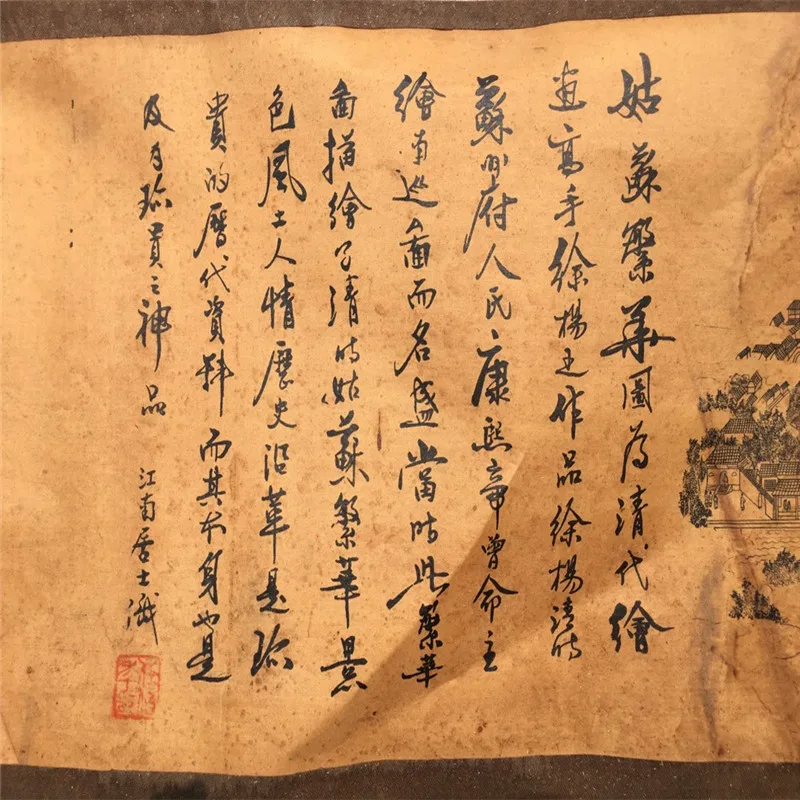 姑蘇繁華圖為清代繪
畫高手徐楊之作品徐楊清時
蘇州府人民康熙帝曾命主
繪南巡圖而名盛當时此繁華
圖描繪了清时姑蘇繁華景
色風土人情歷史沿革是珍
貴的曆代資料而其本身也是
及为珍貴之神品
江南居士識